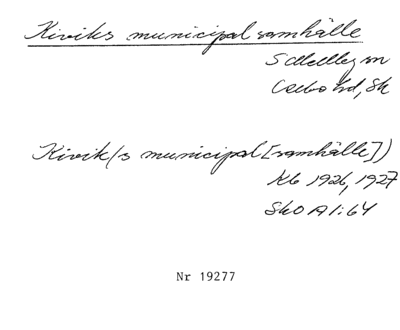 Kiviks municipalsamhälle
S Mellby sn
Kivik/s municipal[samhälle])
Kb 1926, 1927
SkO A1:64
Nr 19277